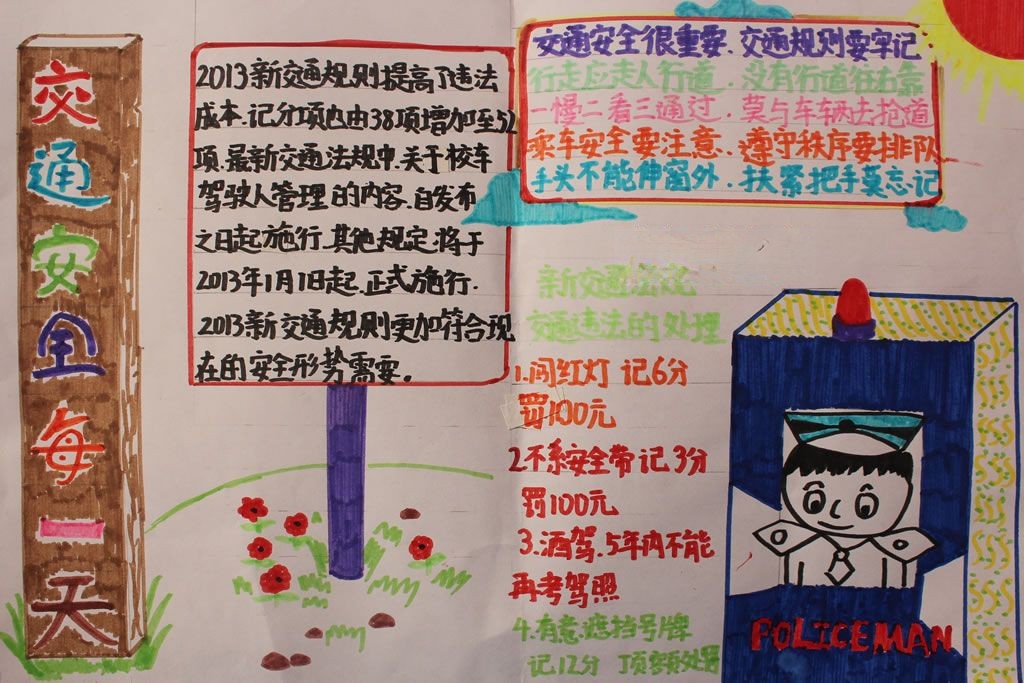 交通安全每一天
2013新交通规则提高了违法
成本.记分项也由38项增加至52
项.最新交通法规中.关于校车
驾驶人管理的内容.自发布
之日起施行.其他规定.将于
2013年1月1日起.正式施行.
2013新交通规则更加符合现
在的安全形势需要。
交通安全很重要.交通规则要牢记
行走应走人行道.没有行道往右靠
一慢二看三通过.莫与车辆去抢道
乘车安全要注意.遵守秩序要排队
手头不能伸窗外.扶紧把手莫忘记
新交通法规
交通违法的处理
1.闯红灯 记6分
罚100元
2.不系安全带记3分
罚100元
3.酒驾.5年内不能
再考驾照
4.有意遮挡号牌
记12分 顶额处罚
POLICEMAN